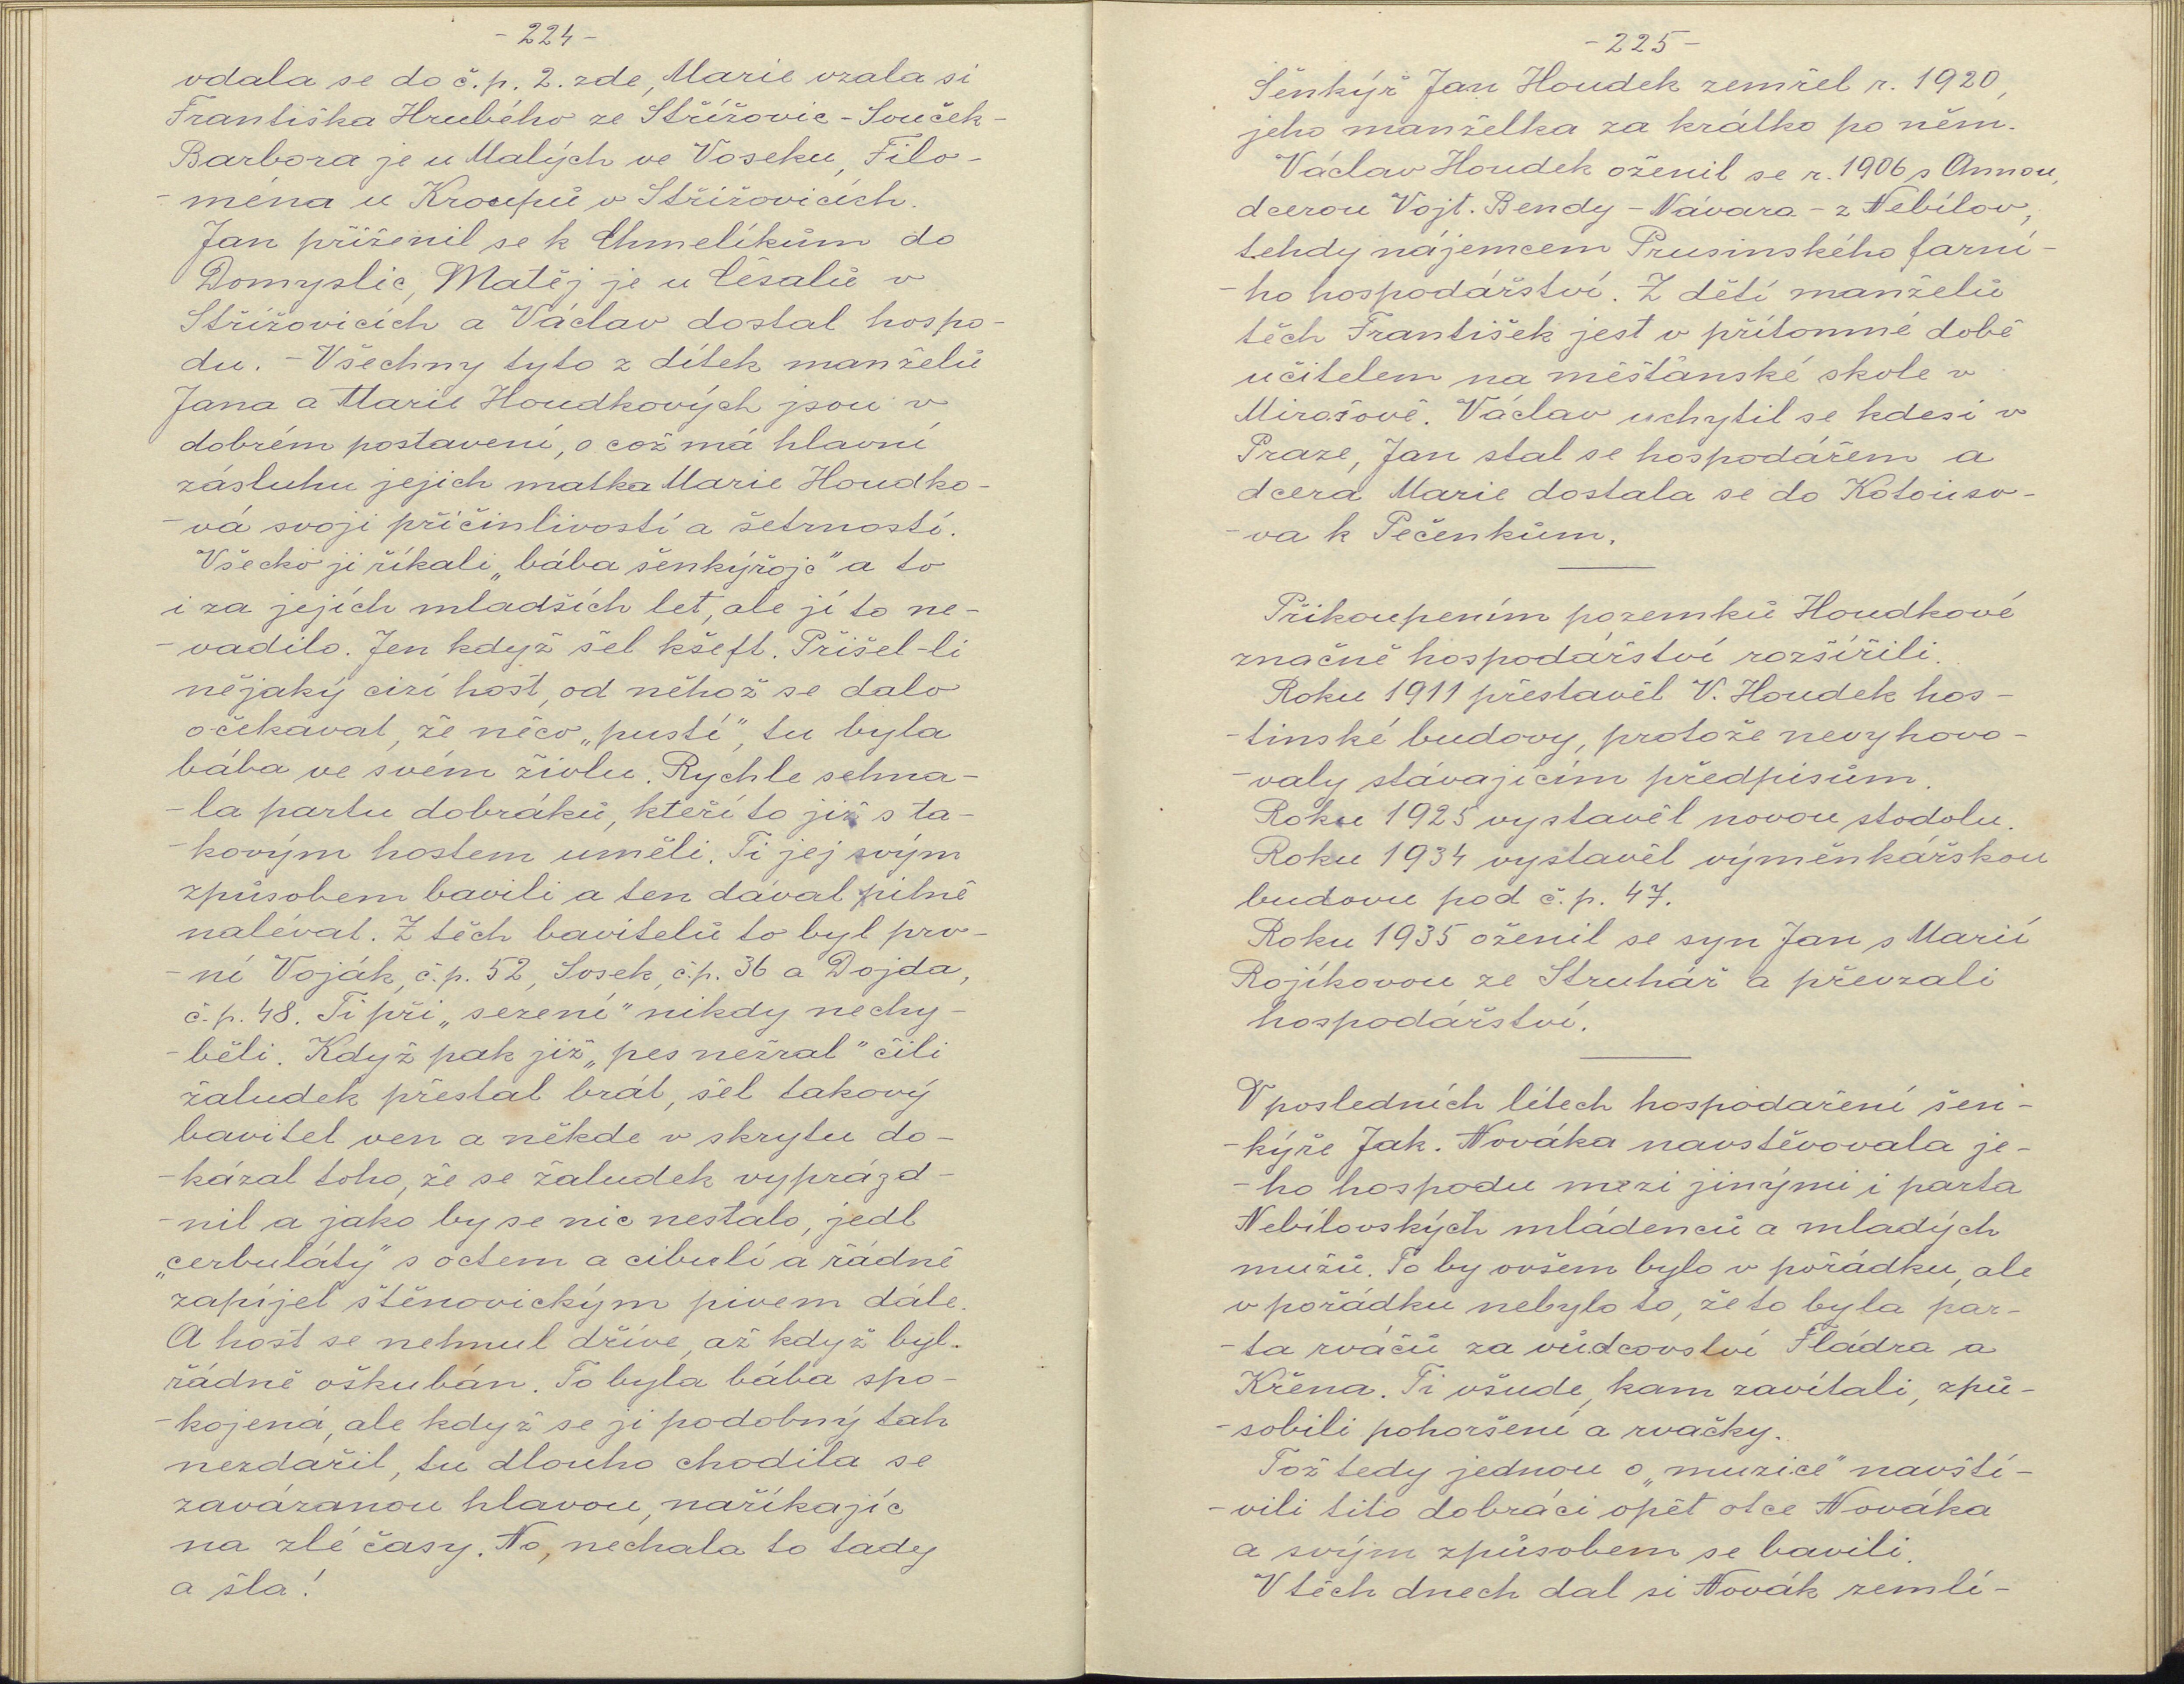 - 224 -
vdala se do č.p. 2. zde, Marie vzala si
Františka Hrubého ze Střížovic - Souček -
Barbora je u Malých ve Voseku, Filo-
- ména u Kroupů v Střížovicích.
Jan přiženil se k Chmelíkům do
Domyslic, Matěj je u Césalů v
Střížovicích a Václav dostal hospo-
du. - Všechny tyto z dítek manželů
Jana a Marie Houdkových jsou v
dobrém postavení, o což má hlavní
zásluhu jejich matka Marie Houdko-
- vá svoji přičinlivostí a šetrností.
Všecko jí říkali „bába šenkýřojc" a to
i za jejích mladších let, ale jí to ne-
- vadilo. Jen když šel kšeft. Přišel-li
nějaký cizí host, od něhož se dalo
očekávat, že něco „pustí", tu byla
bába ve svém živlu. Rychle sehna-
- la partu dobráků, kteří to již s ta-
- kovým hostem uměli. Ti jej svým
způsobem bavili a ten dával pilně
nalévat. Z těch bavitelů to byl prv-
- ní Voják, č.p. 52, Sosek, č.p. 36 a Dojda,
č.p. 48. Ti při „sezení" nikdy nechy-
- běli. Když pak již „pes nežral" čili
žaludek přestal brát, šel takový
bavitel ven a někde v skrytu do-
- kázal toho, že se žaludek vyprázd-
- nil a jako by se nic nestalo, jedl
„cerbuláty" s octem a cibulí a řádně
zapíjel štěnovickým pivem dále.
A host se nehnul dříve, až když byl
řádně oškubán. To byla bába spo-
- kojená, ale když se jí podobný tah
nezdařil, tu dlouho chodila se
zavázanou hlavou, naříkajíc
na zlé časy. No, nechala to tady
a šla!
- 225 -
Šenkýř Jan Houdek zemřel r. 1920,
jeho manželka za krátko po něm.
Václav Houdek oženil se r. 1906 s Annou,
dcerou Vojt. Bendy - Návara - z Nebílov,
tehdy nájemcem Prusinského farní-
- ho hospodářství. Z dětí manželů
těch František jest v přítomné době
učitelem na měšťanské škole v
Mirošově. Václav uchytil se kdesi v
Praze, Jan stal se hospodářem a
dcera Marie dostala se do Kotouso-
- va k Pečenkům.
Přikoupením pozemků Houdkové
značně hospodářství rozšířili.
Roku 1911 přestavěl V. Houdek hos-
- tinské budovy, protože nevyhovo-
- valy stávajícím předpisům.
Roku 1925 vystavěl novou stodolu.
Roku 1934 vystavěl výměnkářskou
budovu pod č.p. 47.
Roku 1935 oženil se syn Jan s Marií
Rojíkovou ze Struhář a převzali
hospodářství.
V posledních létech hospodaření šen-
- kýře Jak. Nováka navštěvovala je-
- ho hospodu mezi jinými i parta
Nebílovských mládenců a mladých
mužů. To by ovšem bylo v pořádku, ale
v pořádku nebylo to, že to byla par-
- ta rváčů za vůdcovství Fládra a
Křena. Ti všude, kam zavítali, způ-
- sobili pohoršení a rvačky.
Tož tedy jednou o „muzice" navští-
- vili tito dobráci opět otce Nováka
a svým způsobem se bavili.
V těch dnech dal si Novák zemlí-